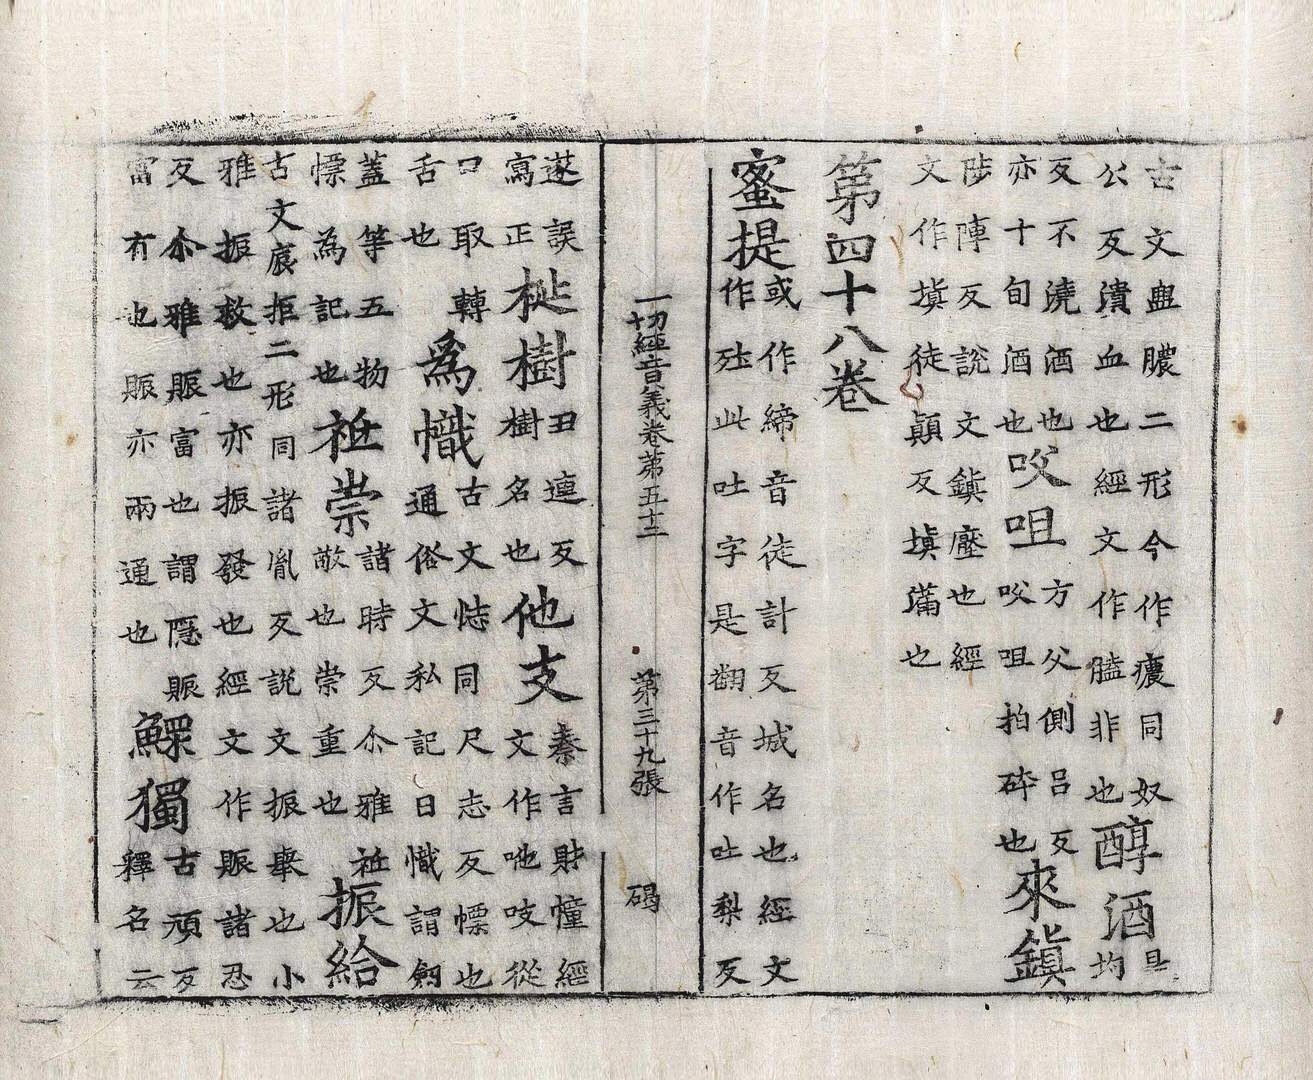 古文盥膿二形今作癑同奴
公反潰血也經文作䐦非也醇酒是均
反不澆酒也
亦十旬酒也㕮咀方父側吕反
㕮咀拍碎也來鎮
陟陣反說文鎮壓也經
文作塡徒顛反塡滿也
第四十八卷
蜜提或作締音徒計反城名也經文
作此吐字是翻音作吐梨反
一切經音義卷第五十二 第三十九張 碣
遂誤
寫正梴樹丑連反
樹名也他支秦言財幢經
文作吔吱從
口取轉
舌也爲幟古文同尺志反幖也
通俗文私記曰幟謂釰
蓋等五物
幖為記也祗崇諸時反尒雅祗
敬也崇重也振給
古文拒二形同諸胤反説文振舉也小
雅振救也亦振發也經文作賑諸忍
反尒雅賑富也謂隱賑
富有也賑亦兩通也鰥獨古頑反
釋名云